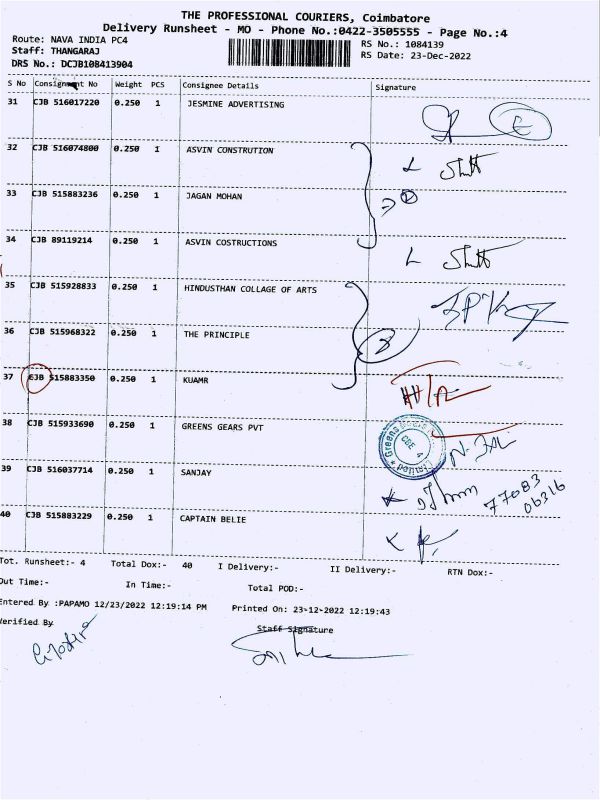 THE PROFESSIONAL COURIERS, Coimbatore
Delivery Runsheet - MO - Phone No.:0422-3505555 - Page No.:4
Route: NAVA INDIA PC4
Staff: THANGARAJ
DRS No.: DCJB108413904
RS No.: 1084139
RS Date: 23-Dec-2022
S No Consignment No Weight PCS Consignee Details Signature
31 CJB 516017220 0.250 1 JESMINE ADVERTISING
32 CJB 516074800 0.250 1 ASVIN CONSTRUTION
33 CJB 515883236 0.250 1 JAGAN MOHAN
34 CJB 89119214 0.250 1 ASVIN COSTRUCTIONS
35 CJB 515928833 0.250 1 HINDUSTHAN COLLAGE OF ARTS
36 CJB 515968322 0.250 1 THE PRINCIPLE
37 CJB 515883350 0.250 1 KUAMR
38 CJB 515933690 0.250 1 GREENS GEARS PVT
Greens CBE 4 Limited
39 CJB 516037714 0.250 1 SANJAY
77083
06316
40 CJB 515883229 0.250 1 CAPTAIN BELIE
Tot. Runsheet:- 4 Total Dox:- 40 I Delivery:- II Delivery:- RTN Dox:-
Out Time:- In Time:- Total POD:-
Entered By :PAPAMO 12/23/2022 12:19:14 PM Printed On: 23-12-2022 12:19:43
Verified By Staff Signature